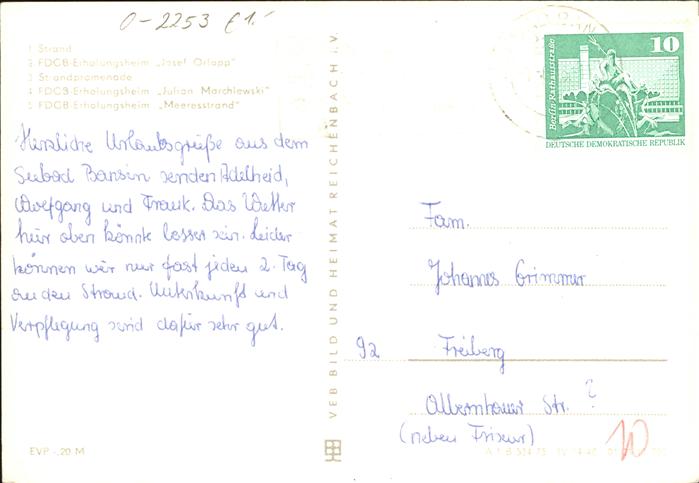 0-2253 €1.-
1 Strand
2 FDGB-Erholungsheim „Josef Orlopp“
3 Strandpromenade
4 FDGB-Erholungsheim „Julian Marchlewski“
5 FDGB-Erholungsheim „Meeresstrand“
Herzliche Urlaubsgrüße aus dem
Seebad Bansin senden Adelheid,
Wolfgang und Frank. Das Wetter
hier oben könnte besser sein. Leider
können wir nur fast jeden 2. Tag
an den Strand. Unterkunft und
Verpflegung sind dafür sehr gut.
EVP -,20 M
VEB BILD UND HEIMAT REICHENBACH i. V.
10
Berlin, Rathausstraße
DEUTSCHE DEMOKRATISCHE REPUBLIK
Fam.
Johannes Grimmer
92 Freiberg
Olbernhauer Str. ?
(neben Friseur)
10